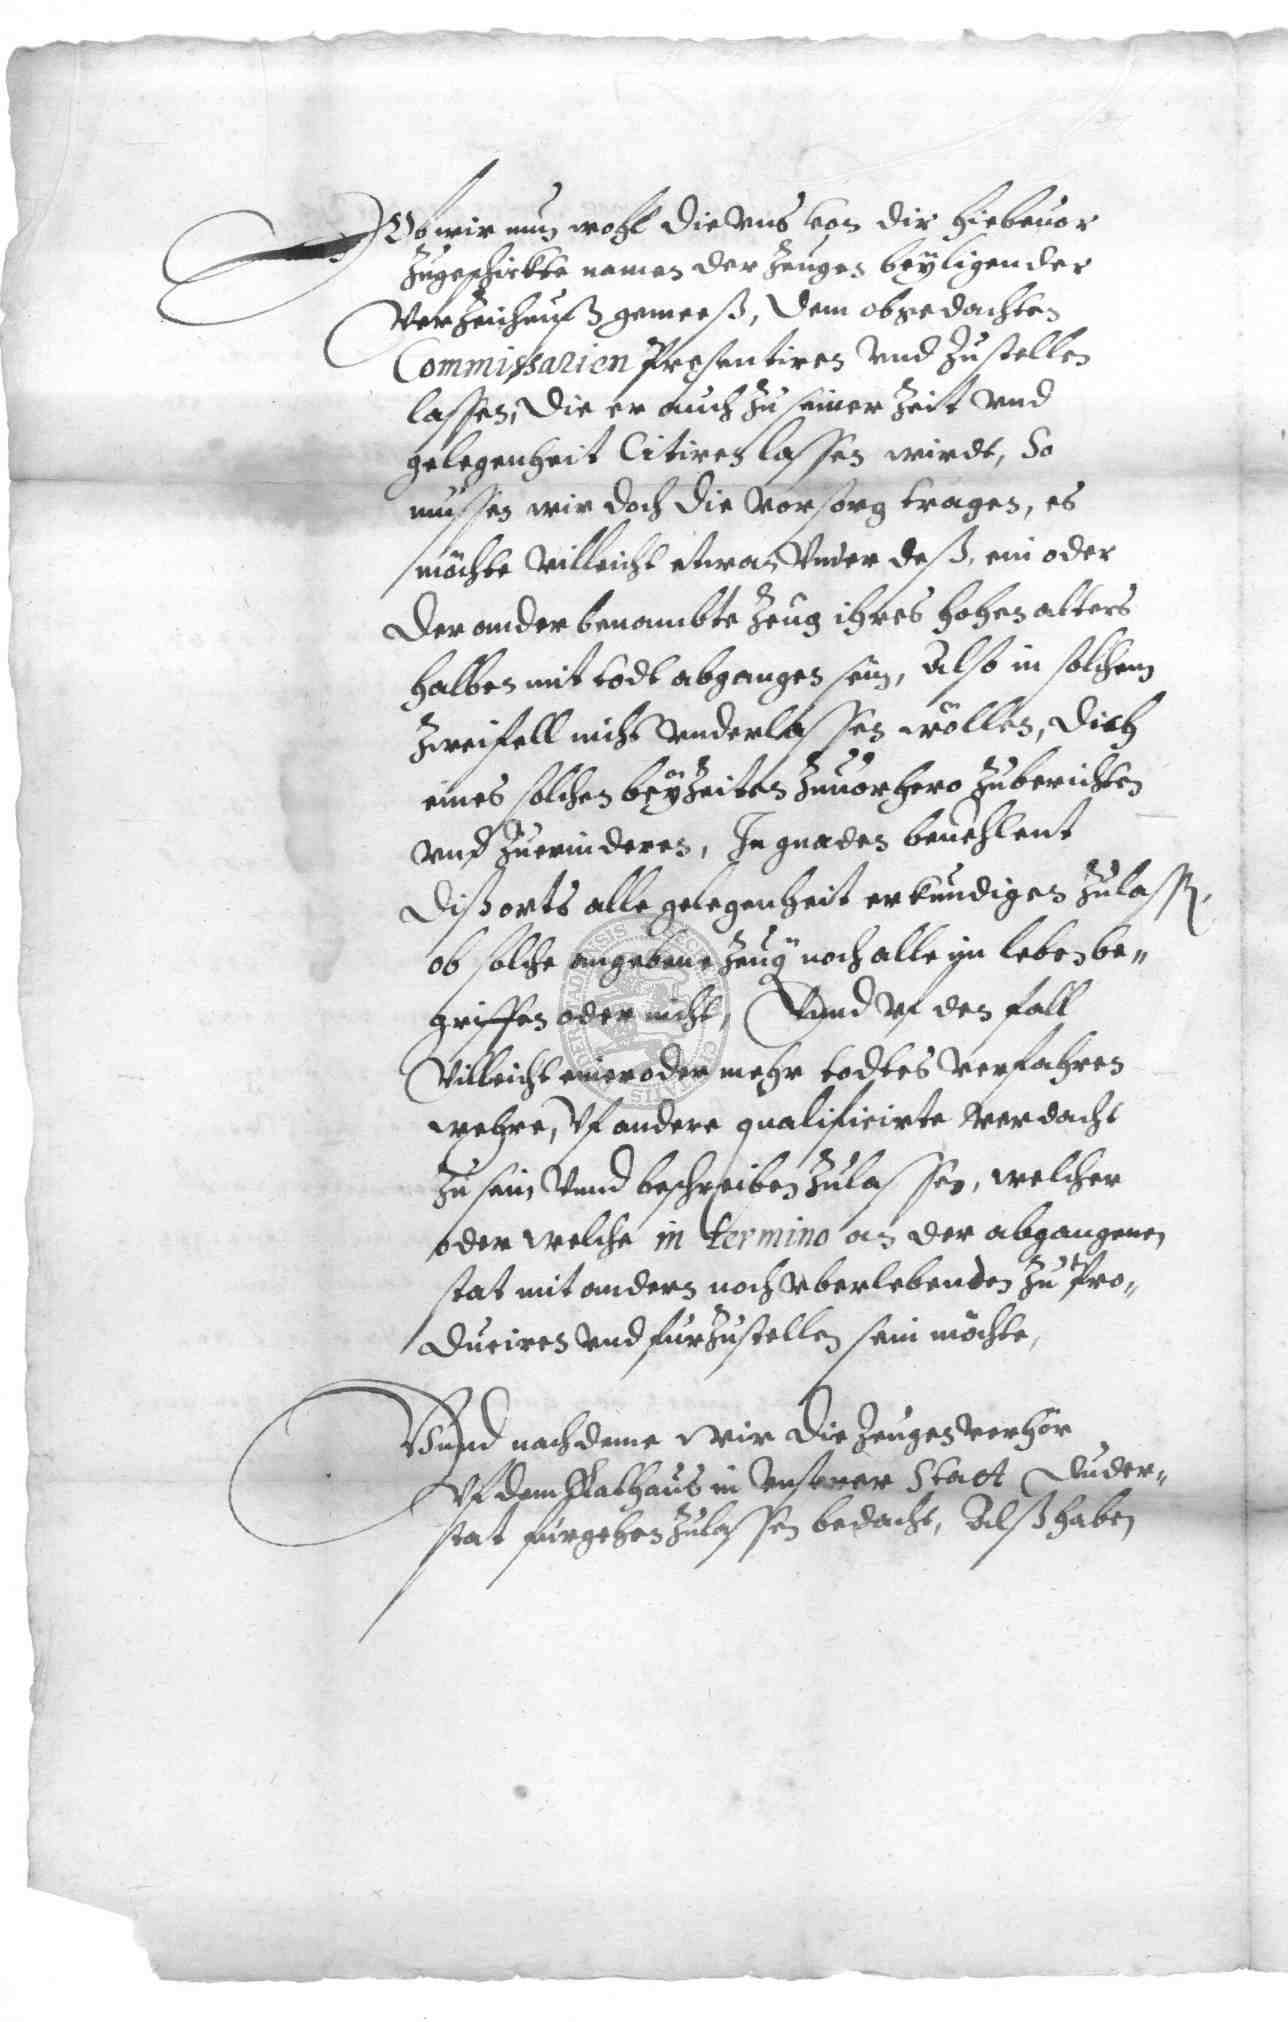 Ob wir nun wohl die vns von dir hiebeuor
zugeschickte namen der Zeugen beyligender
Verzeichnuß gemeeß, dem obgedachten
Commissarien Presentiren vnd zustellen
lassen, die er auch zu seiner Zeit vnd
gelegenheit Citiren lassen wirdt, So
mussen wir doch die vorsorg tragen, es
möchte villeicht etwan vnder deß, ein oder
der ander benambte Zeug ihres hohen alters
halben mit todt abgangen sein, Also in solchem
Zweifell nicht vnderlassen wöllen, dich
eines solchen beyzeiten zuuorhero zuberichten
vnd zuerinderen, In gnaden beuehlent
dißorts alle gelegenheit erkundigen zulassen,
ob solche angebene Zeug noch alle im leben be„
griffen oder nicht, Vnnd vf den fall
Villeicht einer oder mehr todtes verfahren
wehre, Vf andere qualificirte verdacht
zu sein vnnd beschreiben zulassen, welcher
oder welche in termino an der abgangenen
stat mit andern noch vberlebenden zu Pro„
duciren vnd furzustellen sein möchte,
Vnnd nachdeme wir die Zeugen verhör
Vf dem Rathaus in vnserer Statt Duder„
stat fürgehen zulassen bedacht, Alß haben